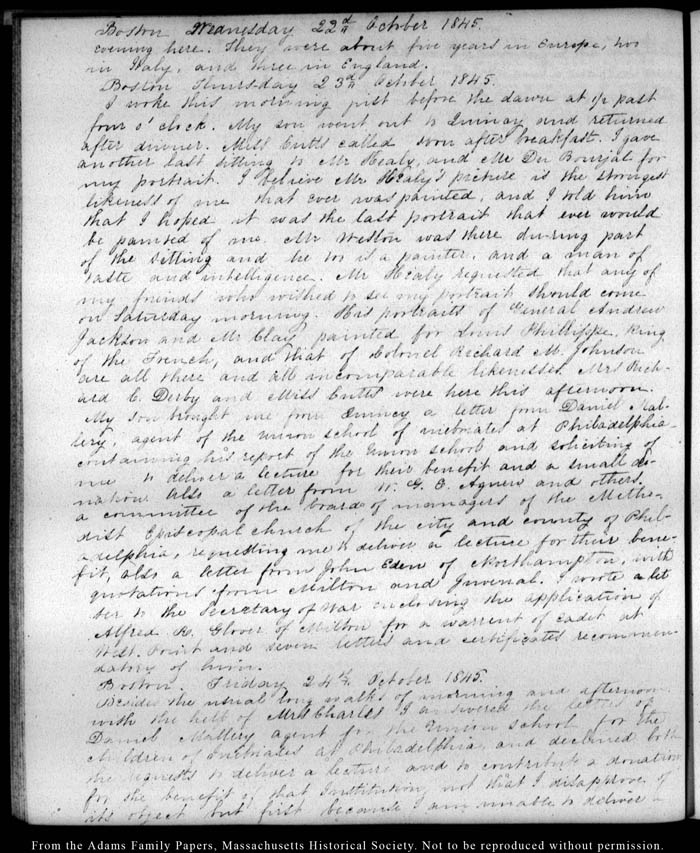 Boston Wednesday 22d October 1845.
evening here. They were about five years in Europe, two
in Italy, and three in England.
Boston Thursday 23d October 1845.
I woke this morning just before the dawn at 1/2 past
four o'clock. My son went out to Quincy and returned
after dinner. Miss Cutts called soon after breakfast. I gave
another last sitting to Mr Healy, and Mr Du Bourjal for
my portrait. I believe Mr Healy's picture is the strongest
likeness of me that ever was painted, and I told him
that I hoped it was the last portrait that ever would
be painted of me. Mr Weston was there during part
of the sitting and he too is a painter, and a man of
taste and intelligence. Mr Healy requested that any of
my friends who wished to see my portrait should come
on Saturday morning. His portraits of General Andrew
Jackson and Mr Clay, painted for Louis Phillippe, King
of the French, and that of Colonel Richard M. Johnson
are all there and all incomparable likenesses. Mrs Rich-
ard C. Derby and Miss Cutts were here this afternoon.
My son brought me from Quincy a letter from Daniel Mal-
lery, agent of the union school of inebriates at Philadelphia
containing his report of the Union school and soliciting of
me to deliver a lecture for their benefit and a small do-
nation also a letter from W. G. E. Agnew and others.
a committee of the board of managers of the Metho-
dist Episcopal church of the city and county of Phil-
adelphia, requesting me to deliver a lecture for their bene-
fit, also a letter from John Eden of Northampton, with
quotations from Milton and Juvenal. I wrote a let
ter to the Secretary of War enclosing the application of
Alfred R. Glover of Milton for a warrent of cadet at
West Point and seven letters and certificates recommen-
datory of him.
Boston. Friday 24th October 1845.
Besides the usual long walks of morning and afternoon
with the help of Mrs Charles I answered the letter of
Daniel Mallery agent for the Union school for the
children of Inebriates at Philadelphia, and declined both
the requests to deliver a lecture and to contribute a donation
for the benefit of that Institution, not that I disapprove of
its object but first because I am unable to deliver a
From the Adams Family Papers, Massachusetts Historical Society. Not to be reproduced without permission.